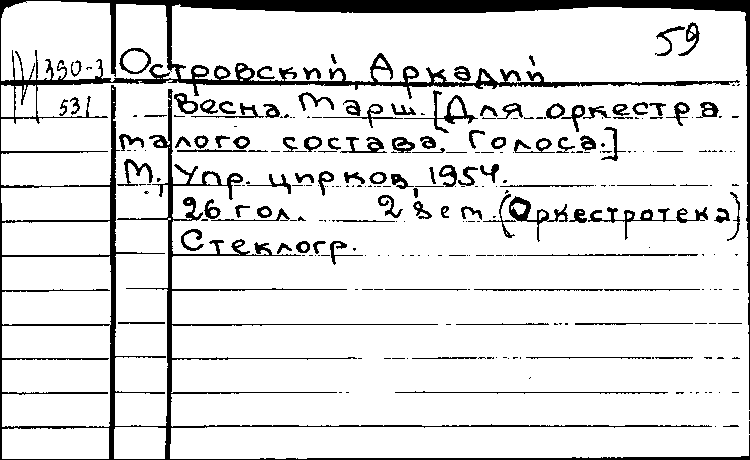 59
М 350-3 Островский, Аркадий
531 Весна. Марш. [Для оркестра
малого состава. Голоса.]
М., Упр. цирков, 1954.
26 гол. 28 ет. (Оркестротека)
Стеклогр.